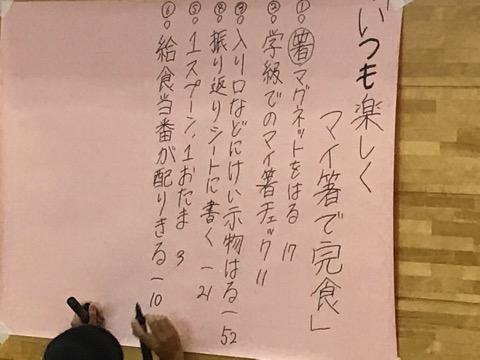 「いつも楽しく
マイ箸で完食」
①。箸マグネットをはる 17
②。学級でのマイ箸チェック 11
③。入り口などにけい示物はる－52
④。振り返りシートに書く－21
⑤。1スプーン、1おたま 3
⑥。給食当番が配りきる－10